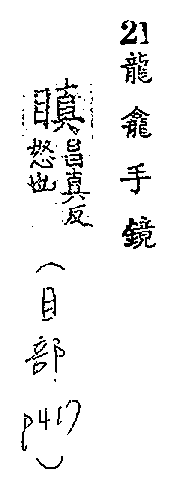 21龍龕手鏡
瞋昌真反
怒也
(目部.
p417)